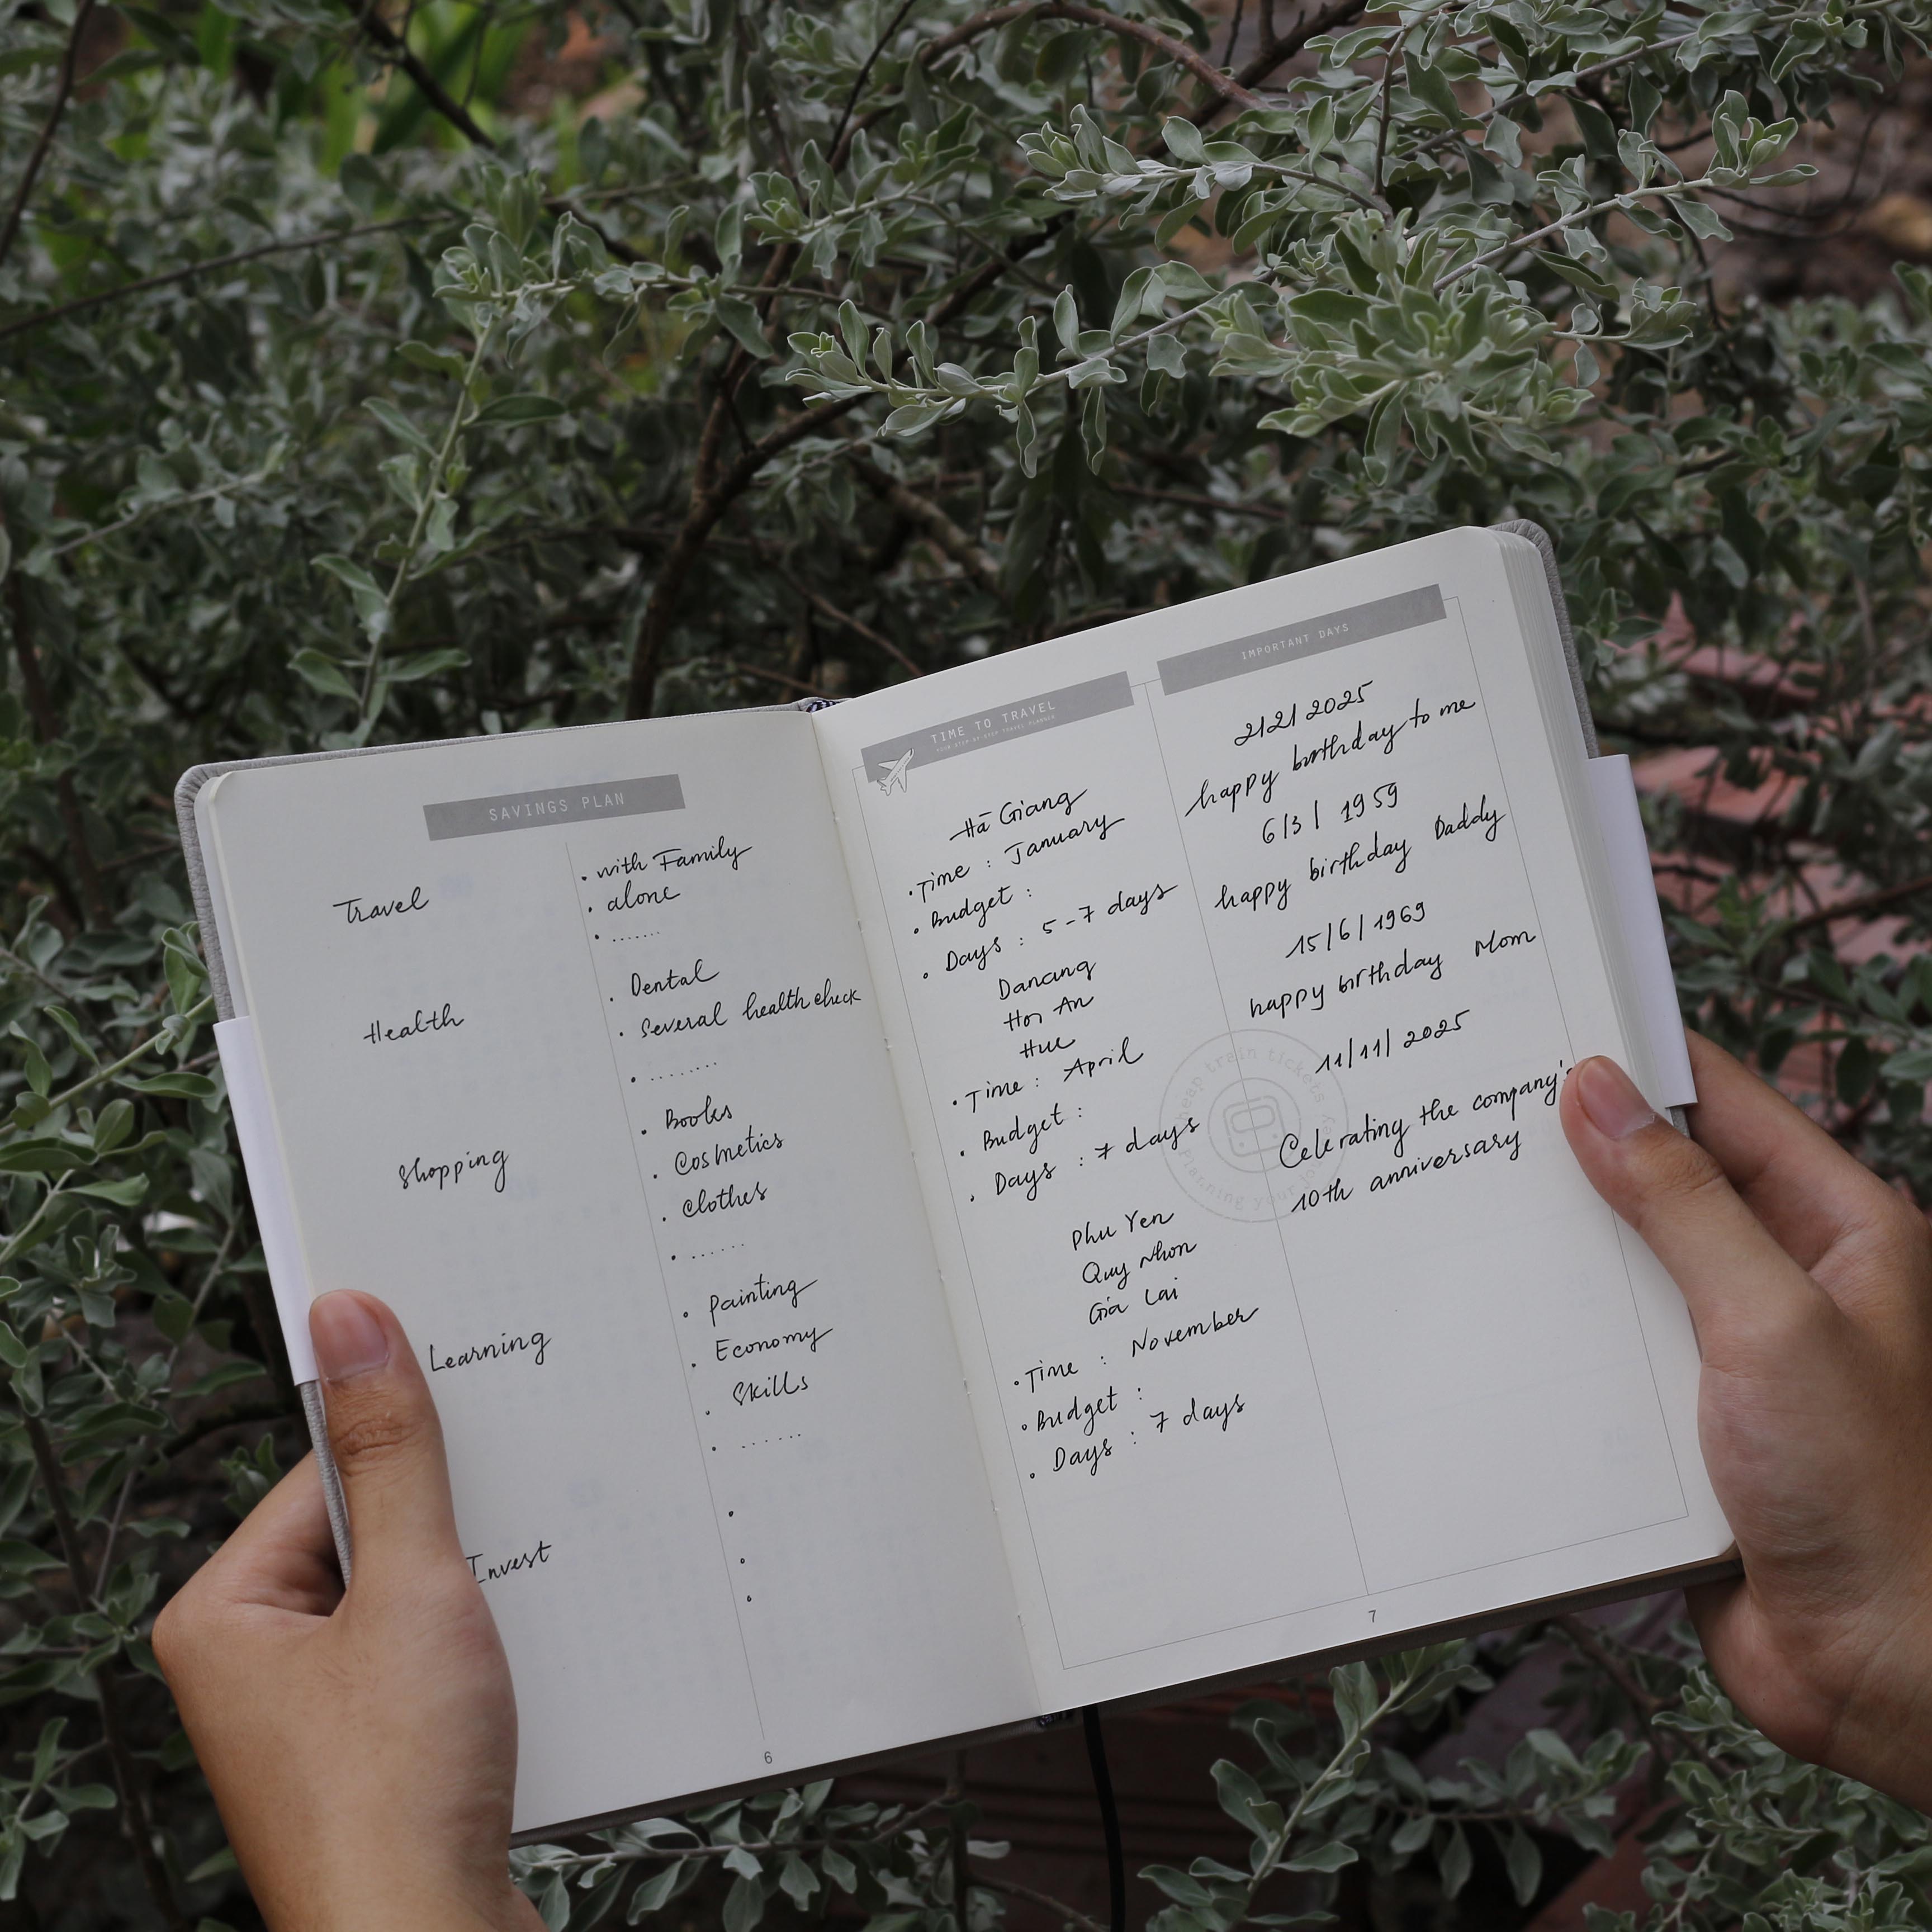 SAVINGS PLAN
Travel
. with Family
. alone
. .......
Health
. Dental
. Several health check
. ........
Shopping
. Books
. Cosmetics
. Clothes
. ......
Learning
. painting
. Economy
. Skills
. ......
Invest
.
.
.
6
TIME TO TRAVEL
YOUR STEP-BY-STEP TRAVEL PLANNER
Hà Giang
. Time : January
. Budget :
. Days : 5-7 days
Danang
Hoi An
Hue
. Time : April
. Budget :
. Days : 7 days
Phu Yen
Quy Nhon
Gia Lai
. Time : November
. Budget :
. Days : 7 days
IMPORTANT DAYS
2/2/2025
happy birthday to me
6/3/1959
happy birthday Daddy
15/6/1969
happy birthday Mom
11/11/2025
Celerating the company's
10th anniversary
cheap train tickets
Planning your
7